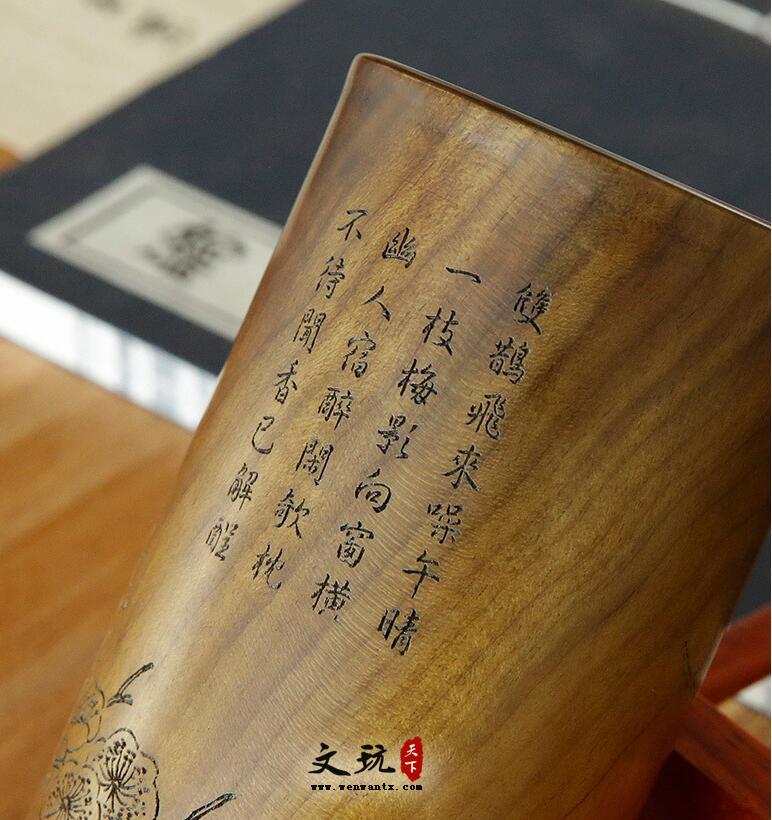 雙鵲飛來噪午晴
一枝梅影向窗橫
幽人宿醉閑欹枕
不待聞香已解酲
文玩天下
www.wenwantx.com